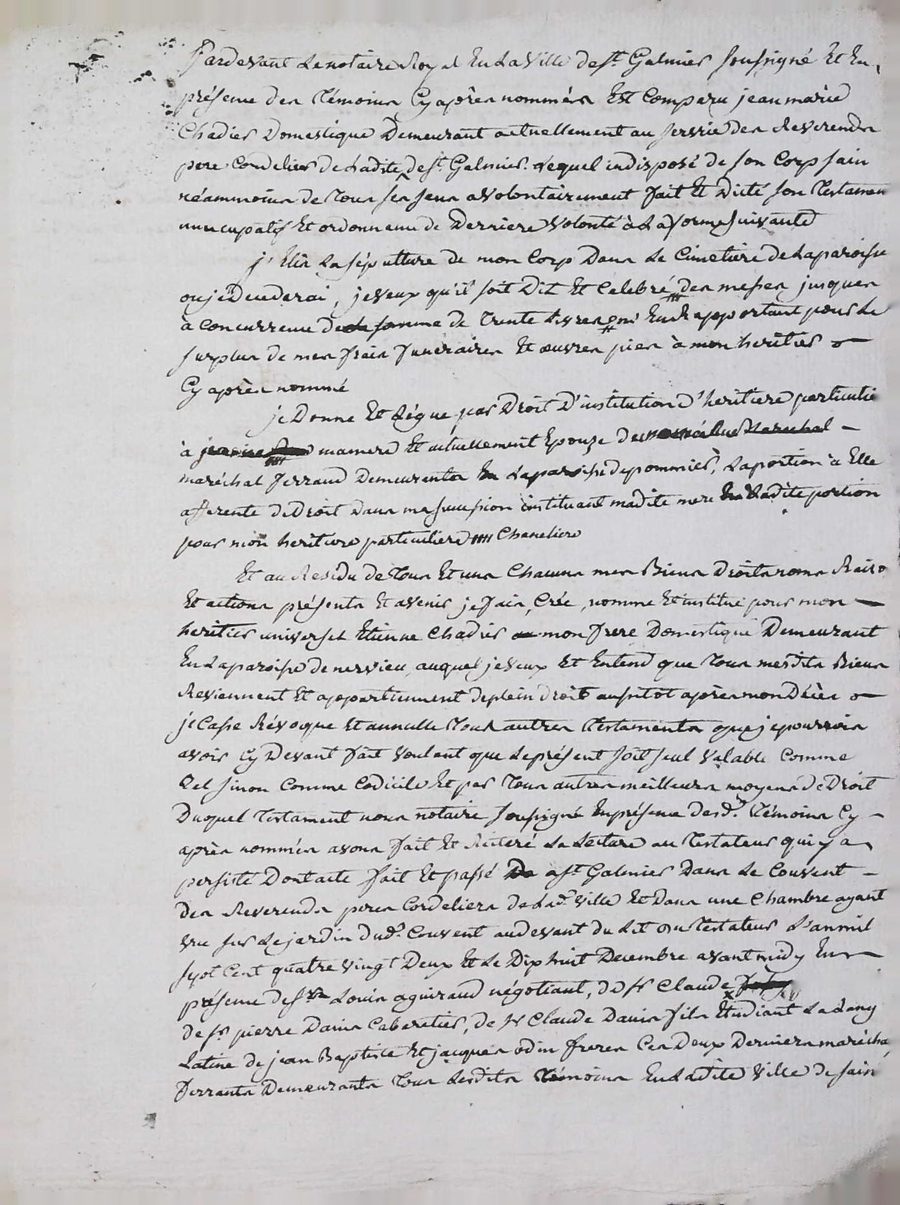 Pardevant Le notaire Royal En La Ville de st Galmier soussigné Et En
présence des Témoins Cy après nommés Est Comparu jean marie
Chadier Domestique Demeurant actuellement au service des Reverends
pere Cordelier de Ladite de st Galmier. Lequel indisposé de son Corp sain
néammoins de Tous ses sens a volontairement fait Et Dicté son Testament
nuncupatif Et ordonnence de Derniere Volonté à La forme suivante
j'Elis La sépulture de mon Corp Dans Le Cimetiere de Laparoisse
ou je Decederai, je veux qu'il soit Dit Et Celebré des messes jusques
à Concurrence de la somme de Trente Livres apportant pour Le
surplus de mes frais funeraires Et œuvres pies à mon heritier
Cy après nommé
je Donne Et Légue par Droit D'institution d'heritiere particulie
à jeanne mamere Et actuellement Epouze de Marechal
maréchal ferrand Demeurants En Laparoisse de pommier, Laportion à Elle
afferente de Droit Dans ma succession instituant madite mere En Ladite portion
pour mon heritiere particuliere Chaneliere
Et au Residu de Tous Et uns Chacuns mes Biens Droits noms Raiso
Et actions présents Et avenir je fais, Crée, nomme Et institue pour mon
heritier universel Etienne Chadier mon frere Domestique Demeurant
En Laparoisse de nervieu, auquel je veux Et Entend que Tous mesdits Biens
Reviennent Et appartiennent de plein droit aussitot après mon Décès
je Casse Révoque Et annulle Tous autres Testaments que je pourrois
avoir Cy Devant fait voulant que Le présent soit seul valable Comme
Tel sinon Comme Codicile Et par Tous autres meilleurs moyens de Droit
Duquel Testament nous notaire soussigné En présence desd. Témoins Cy
après nommés avons fait Et Réiteré La Lecture au Testateur qui y a
persisté Dont acte fait Et passé a st Galmier Dans Le Couvent
des Reverends peres Cordeliers de Lad. Ville Et Dans une Chambre ayant
vue sur Le jardin dud. Couvent au devant du Lit du Testateur L'an mil
sept Cent quatre vingt Deux Et Le Dix huit Decembre avant midy En
présence de sr Louis aguiraud négotiant, de sr Claude
de sr pierre Davin Cabaretier, de sr Claude Davin fils Etudiant La Lang
Latine de jean Baptiste Et jacques odin freres Ces Deux Derniers marécha
ferrants Demeurants Tous Lesdits Témoins En Ladite Ville de sain